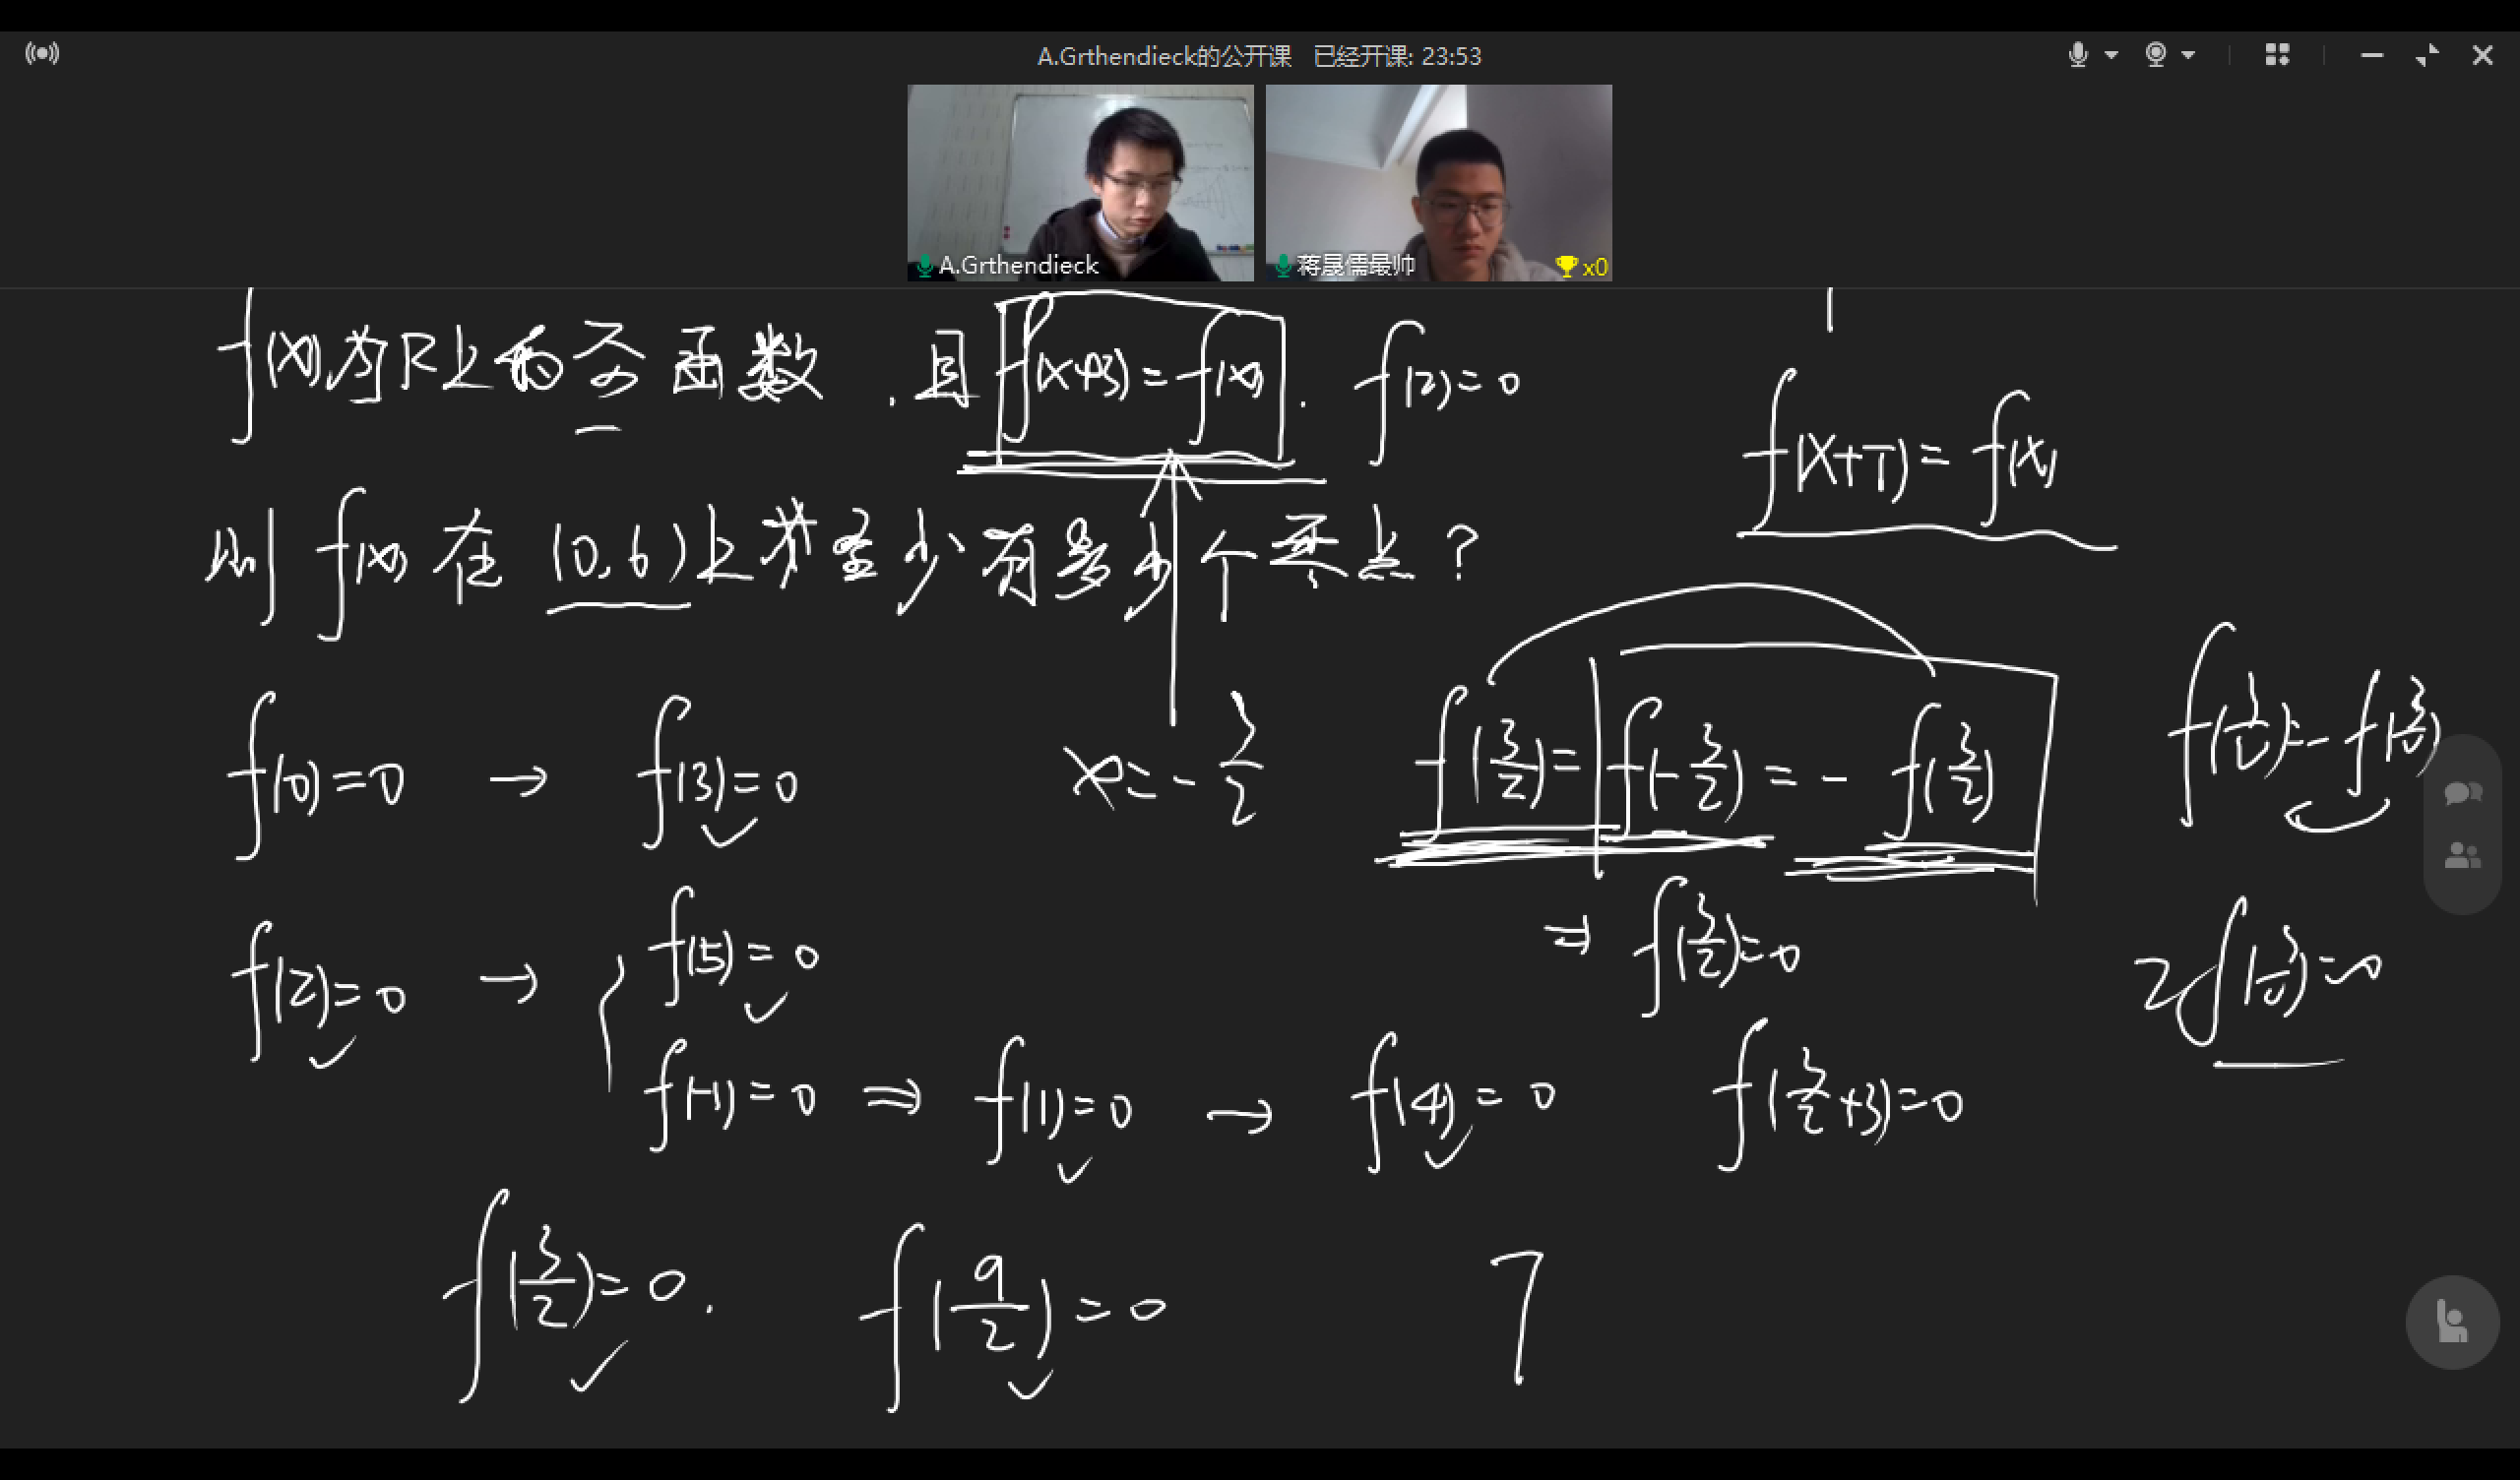 A.Grthendieck的公开课 已经开课: 23:53
A.Grthendieck
蒋晟儒最帅
x0
f(x)为R上的奇函数, 且 f(x+3)=f(x). f(2)=0
f(x+T)=f(x)
则 f(x) 在 (0,6)上至少有多少个零点?
f(0)=0 → f(3)=0
x=-3/2
f(3/2)=f(-3/2)=-f(3/2)
f(3/2)=-f(3/2)
⇒ f(3/2)=0
2f(3/2)=0
f(2)=0 → { f(5)=0
f(-1)=0 ⇒ f(1)=0 → f(4)=0
f(3/2+3)=0
f(3/2)=0. f(9/2)=0
7